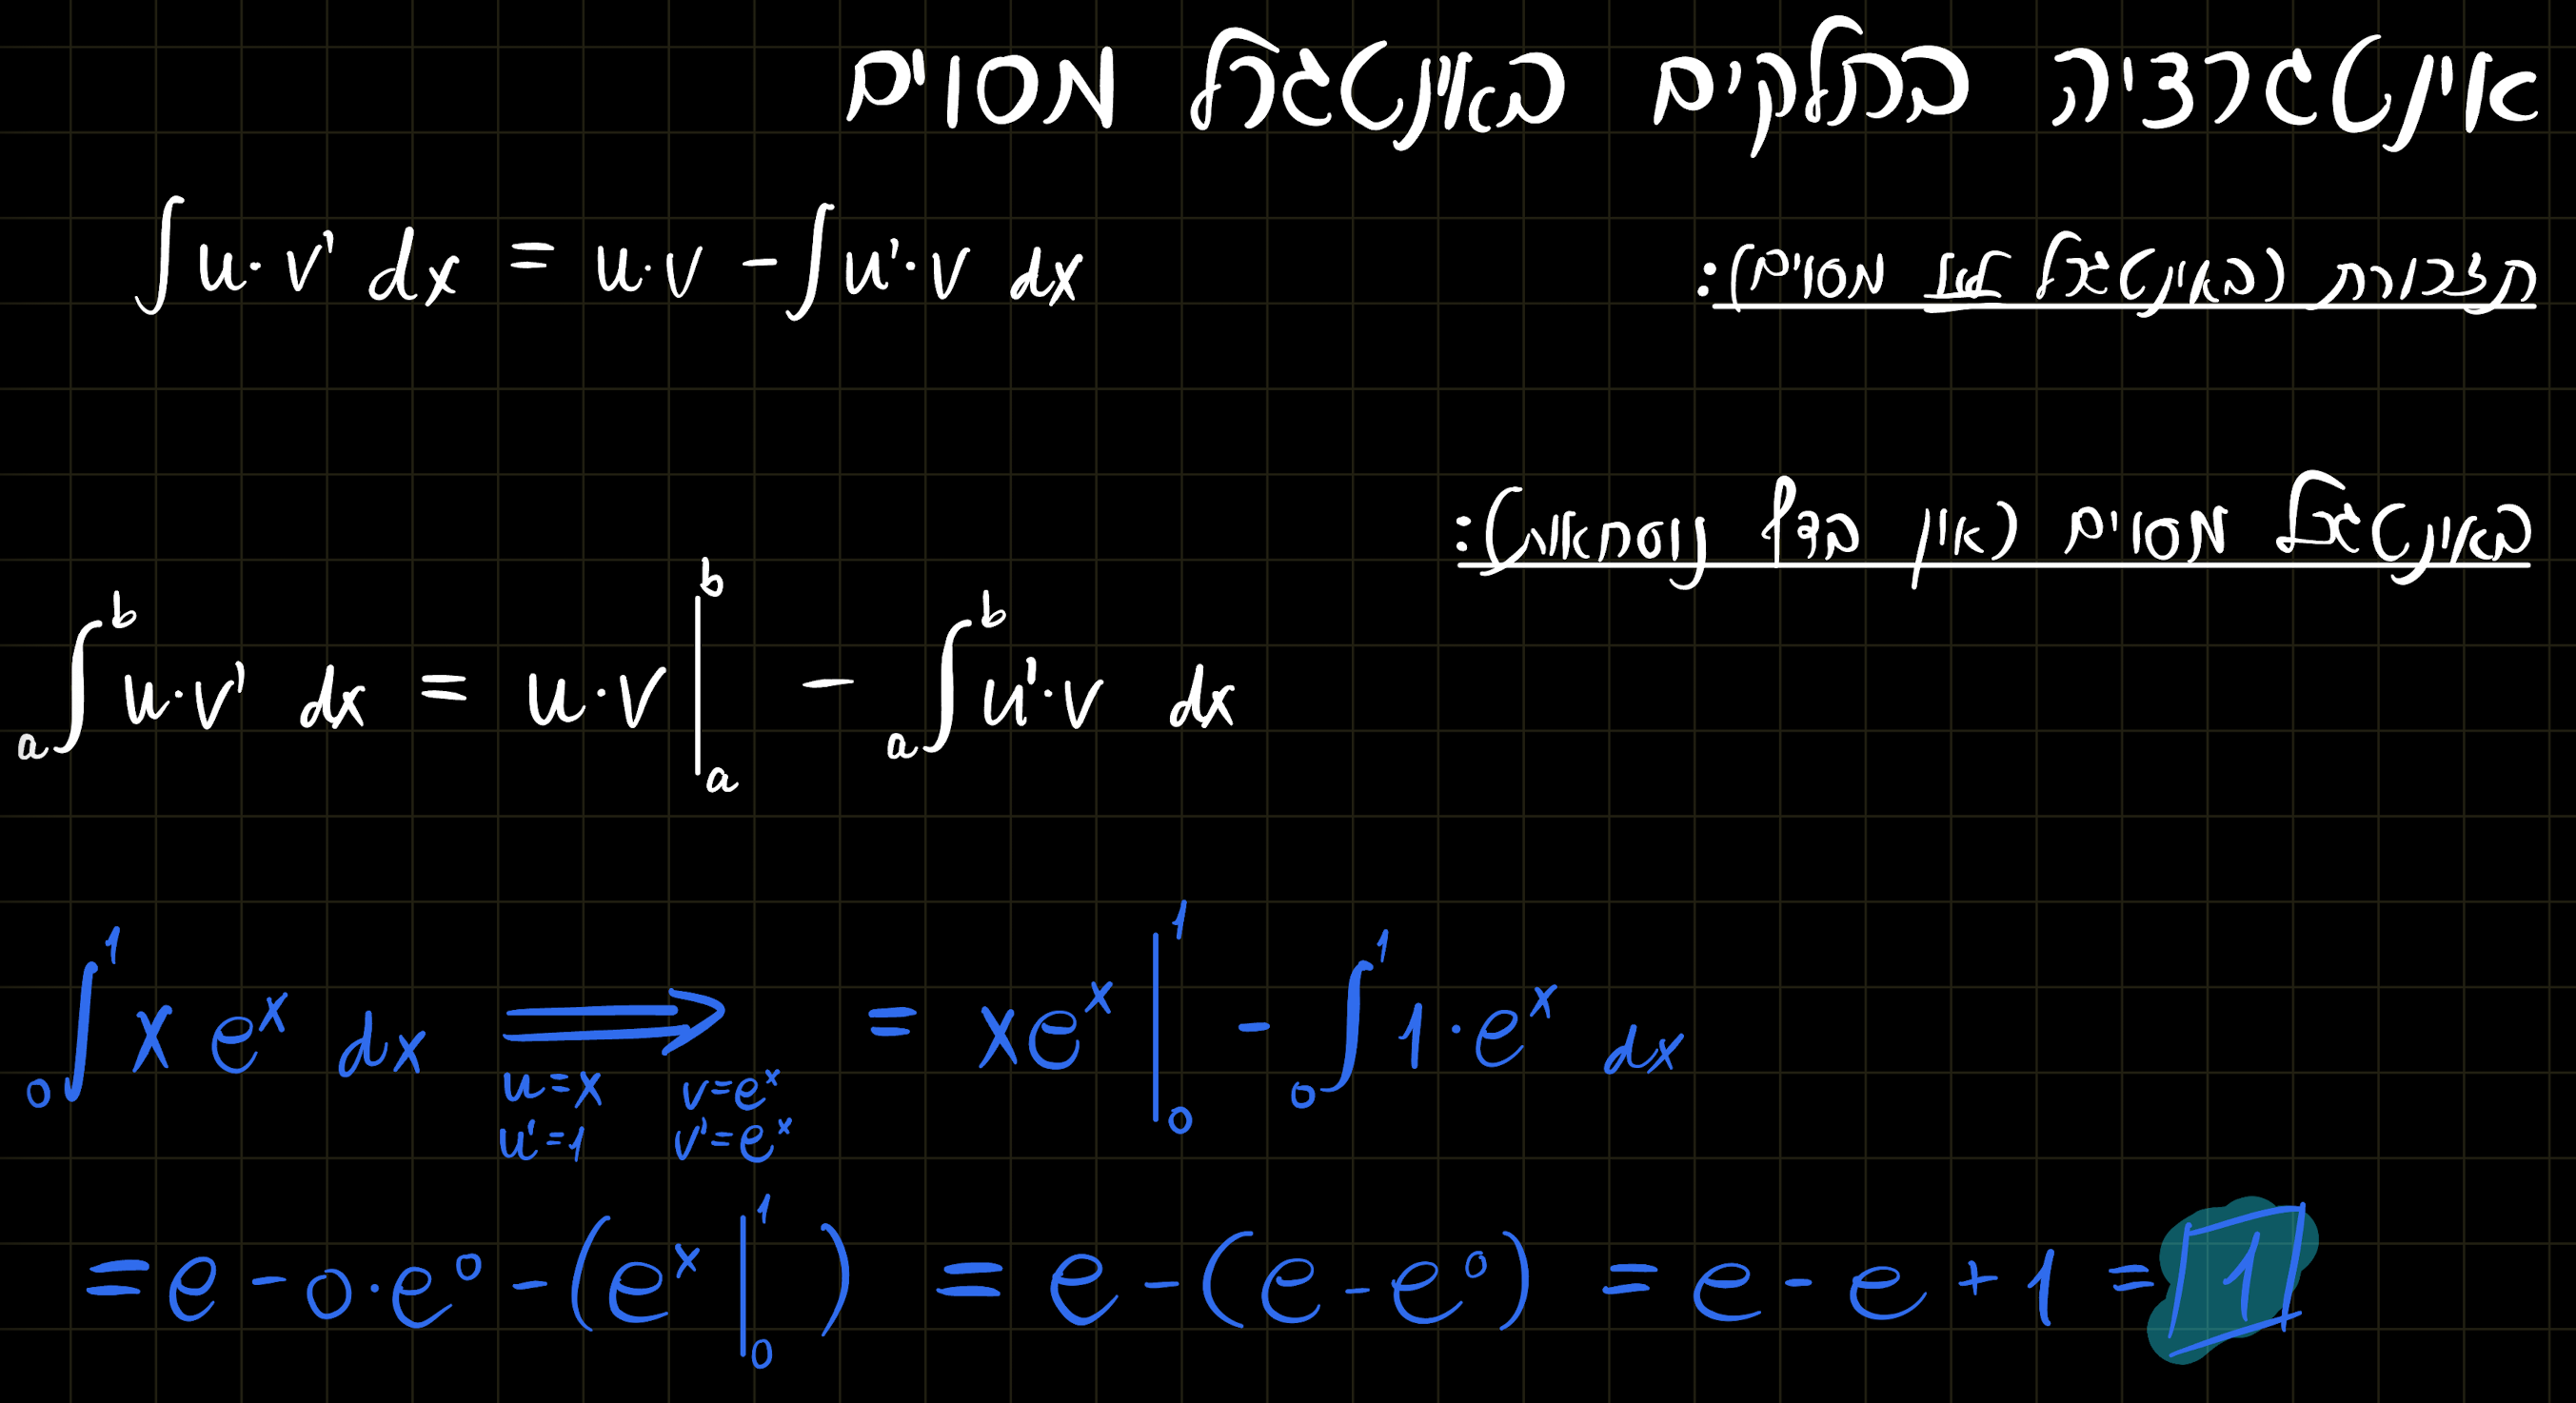 אינטגרציה בחלקים באינטגרל מסוים
תזכורת (באינטגרל לא מסוים):
∫ u·v' dx = u·v - ∫ u'·v dx
באינטגרל מסוים (אין בדף נוסחאות):
a∫b u·v' dx = u·v |b a - a∫b u'·v dx
0∫1 x e^x dx ⟹ = xe^x |1 0 - 0∫1 1·e^x dx
u=x v=e^x
u'=1 v'=e^x
= e - 0·e^0 - (e^x |1 0) = e - (e - e^0) = e - e + 1 = 1